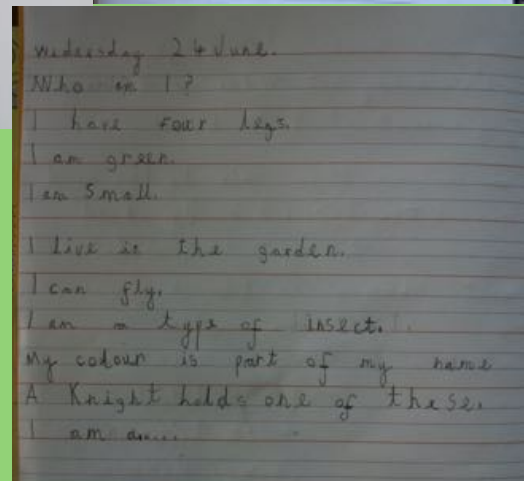 Wedersday 24 June.
Who am I?
I have four legs.
I am green.
I am small.
I live in the garden.
I can fly.
I am a type of insect.
My colour is part of my name
A Knight holds one of these.
I am a.....